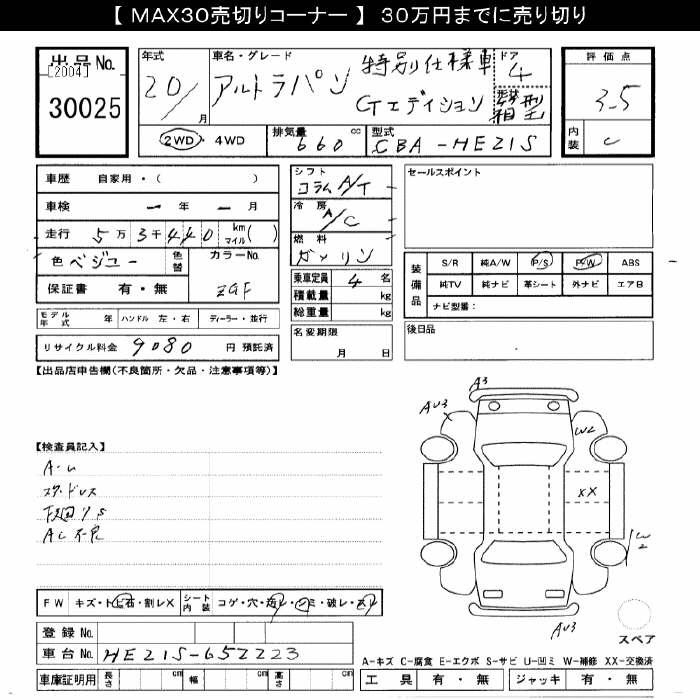 【 MAX30売切りコーナー 】 30万円までに売り切り
出品No.
[2004]
30025
年式
20/
月
車名・グレード
アルトラパン
特別仕様車
GTエディション
ドア
4
形状
箱型
2WD ・ 4WD
排気量
660
cc
型式
CBA-HE21S
評価点
3.5
内装
C
車歴 自家用・( )
車検 ー年ー月
走行 5万3千440 km マイル( )
色 ベジュー
色替
カラーNo.
ZGF
保証書 有・無
シフト
コラムA/T
冷房
A/C
燃料
ガソリン
乗車定員 4 名
積載量 kg
総重量 kg
セールスポイント
装備品
S/R 純A/W P/S P/W ABS
純TV 純ナビ 革シート 外ナビ エアB
ナビ型番:
モデル年式 年 ハンドル 左・右 ディーラー・並行
リサイクル料金 9080 円 預託済
名変期限
月 日
後日品
【出品店申告欄(不良箇所・欠品・注意事項等)】
A3
AU3
W2
XX
W2
AU3
スペア
【検査員記入】
スタッドレス
AC不良
FW キズ・トビ石・割レX
シート内装 コゲ・穴・汚レ・シミ・破レ・スレ
登録No.
車台No. HE21S-652223
車庫証明用 長さ cm 幅 cm 高さ cm
A-キズ C-腐食 E-エクボ S-サビ U-凹ミ W-補修 XX-交換済
工具 有・無 ジャッキ 有・無